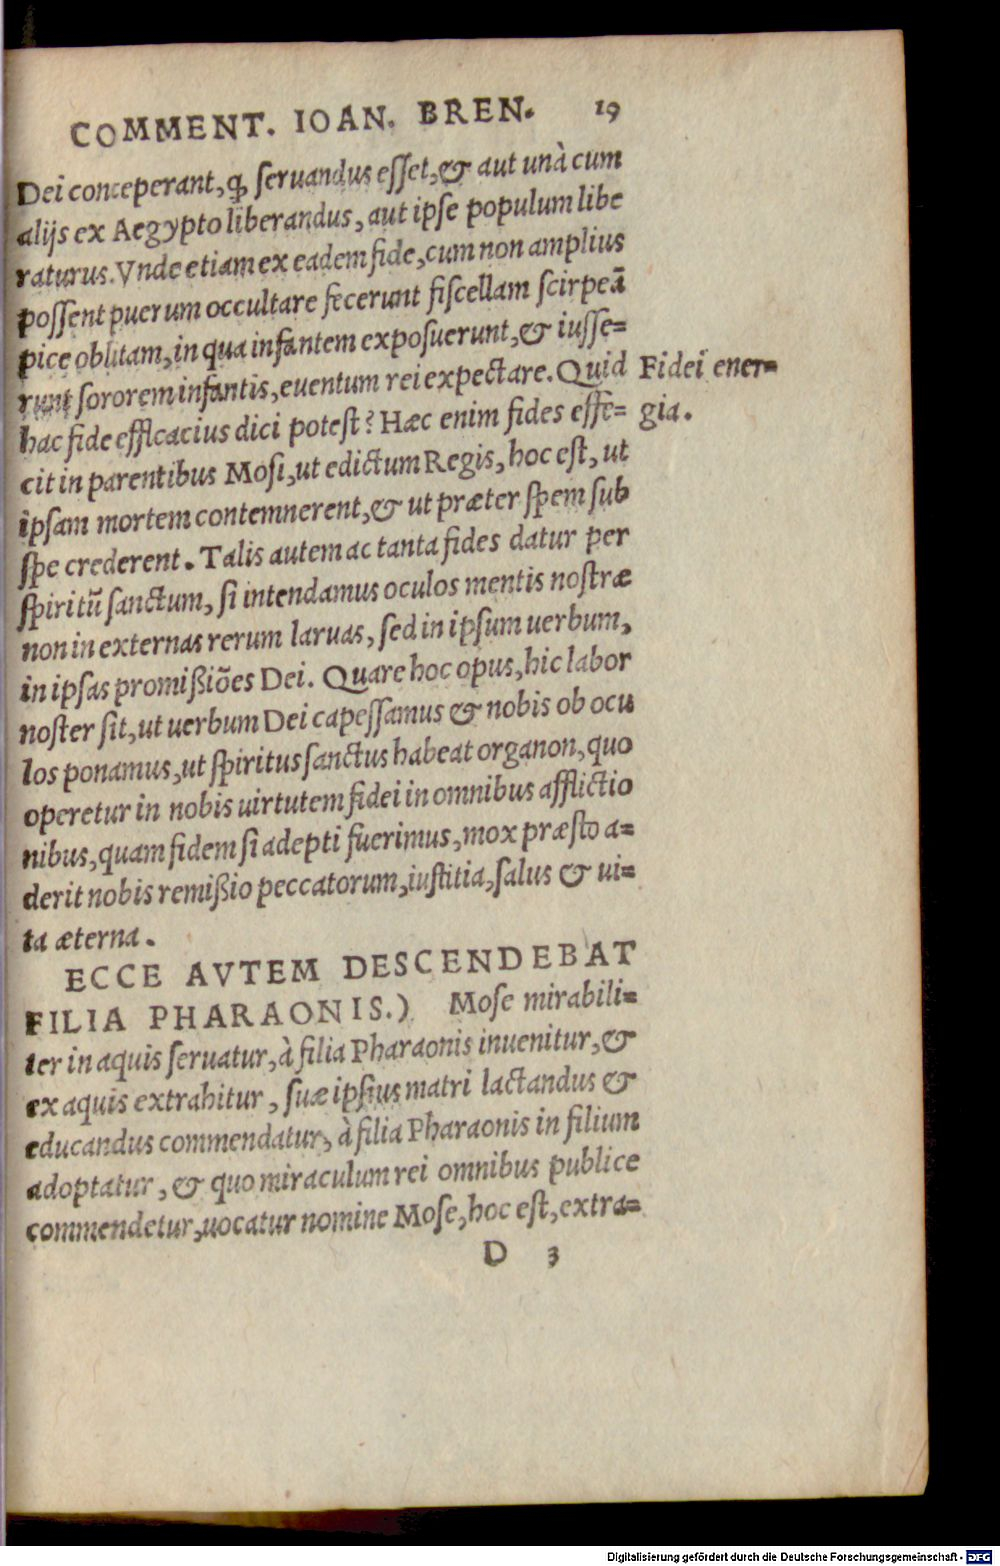 COMMENT. IOAN. BREN. 19
Dei conceperant, ꝙ seruandus esset, & aut unà cum
alijs ex Aegypto liberandus, aut ipse populum libe
raturus. Vnde etiam ex eadem fide, cum non amplius
possent puerum occultare fecerunt fiscellam scirpeã
pice oblitam, in qua infantem exposuerunt, & iusse=
runt sororem infantis, euentum rei expectare. Quid
hac fide efficacius dici potest? Hæc enim fides effe=
cit in parentibus Mosi, ut edictum Regis, hoc est, ut
ipsam mortem contemnerent, & ut præter spem sub
spe crederent. Talis autem ac tanta fides datur per
spiritũ sanctum, si intendamus oculos mentis nostræ
non in externas rerum laruas, sed in ipsum uerbum,
in ipsas promißiões Dei. Quare hoc opus, hic labor
noster sit, ut uerbum Dei capessamus & nobis ob ocu
los ponamus, ut spiritus sanctus habeat organon, quo
operetur in nobis uirtutem fidei in omnibus afflictio
nibus, quam fidem si adepti fuerimus, mox præsto a=
derit nobis remißio peccatorum, iustitia, salus & ui=
ta æterna.
ECCE AVTEM DESCENDEBAT
FILIA PHARAONIS.) Mose mirabili=
ter in aquis seruatur, à filia Pharaonis inuenitur, &
ex aquis extrahitur, suæ ipsius matri lactandus &
educandus commendatur, à filia Pharaonis in filium
adoptatur, & quo miraculum rei omnibus publice
commendetur, uocatur nomine Mose, hoc est, extra=
D 3
Fidei ener=
gia.
Digitalisierung gefördert durch die Deutsche Forschungsgemeinschaft - DFG